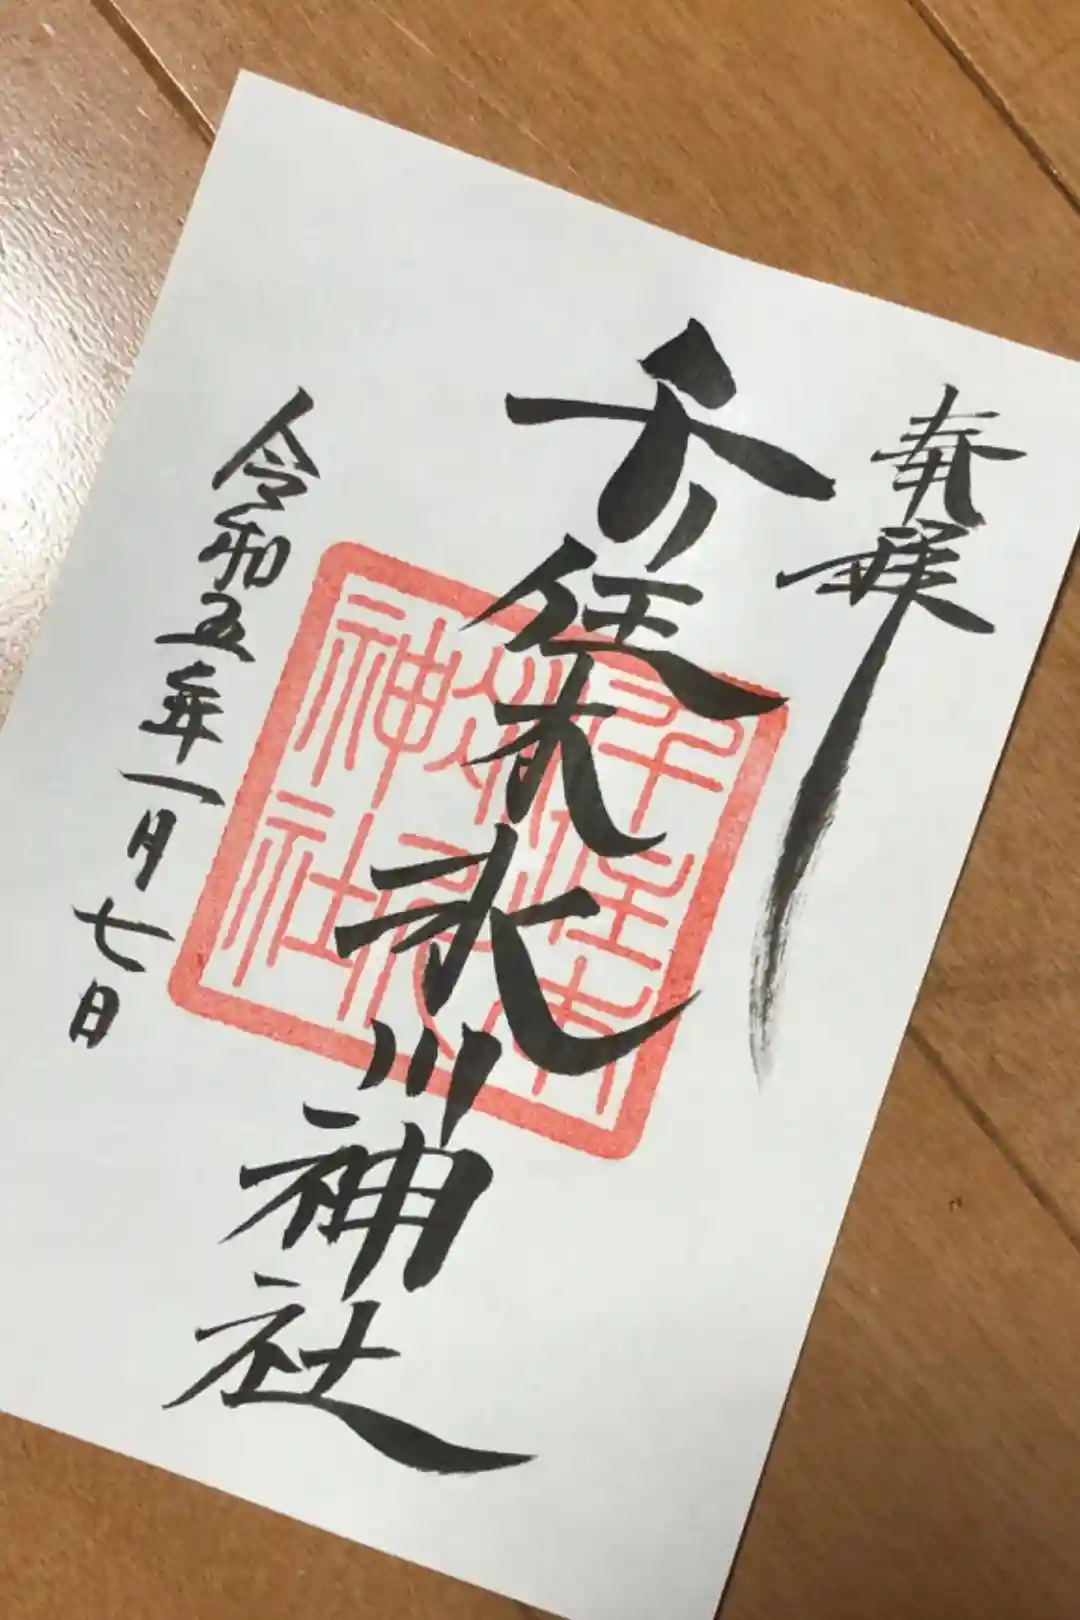 奉拝
千住本氷川神社
千住本
氷川
神社
令和五年一月七日